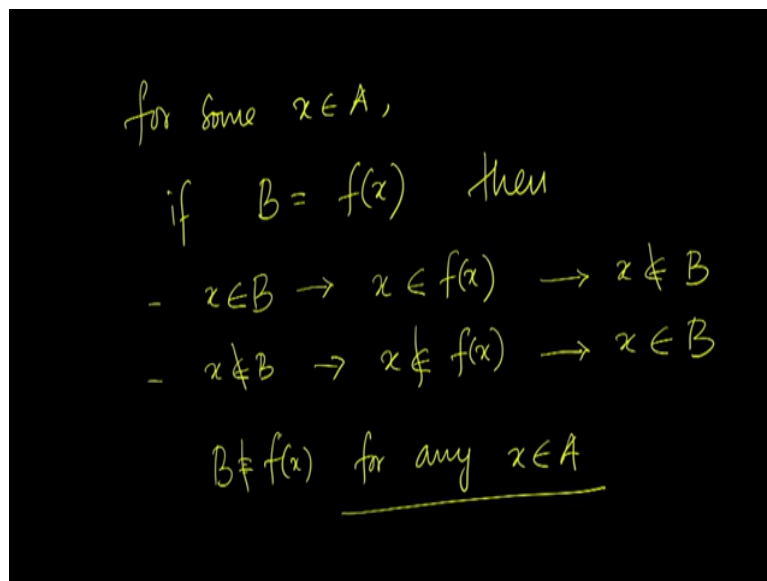 for some x ∈ A,
if B = f(x) then
- x ∈ B → x ∈ f(x) → x ∉ B
- x ∉ B → x ∉ f(x) → x ∈ B
B ≠ f(x) for any x ∈ A